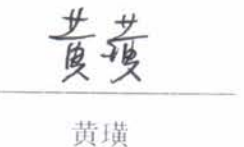 黄璜
黄璜